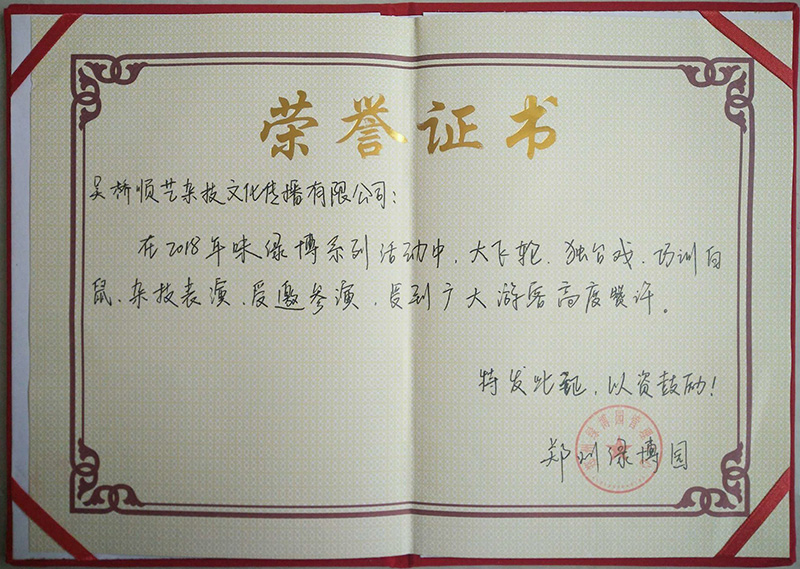 荣誉证书
吴桥顺艺杂技文化传播有限公司:
在2018年味绿博系列活动中、大飞轮、独台戏、巧训白
鼠、杂技表演、受邀参演,受到广大游客高度赞许。
特发此证,以资鼓励!
郑州绿博园